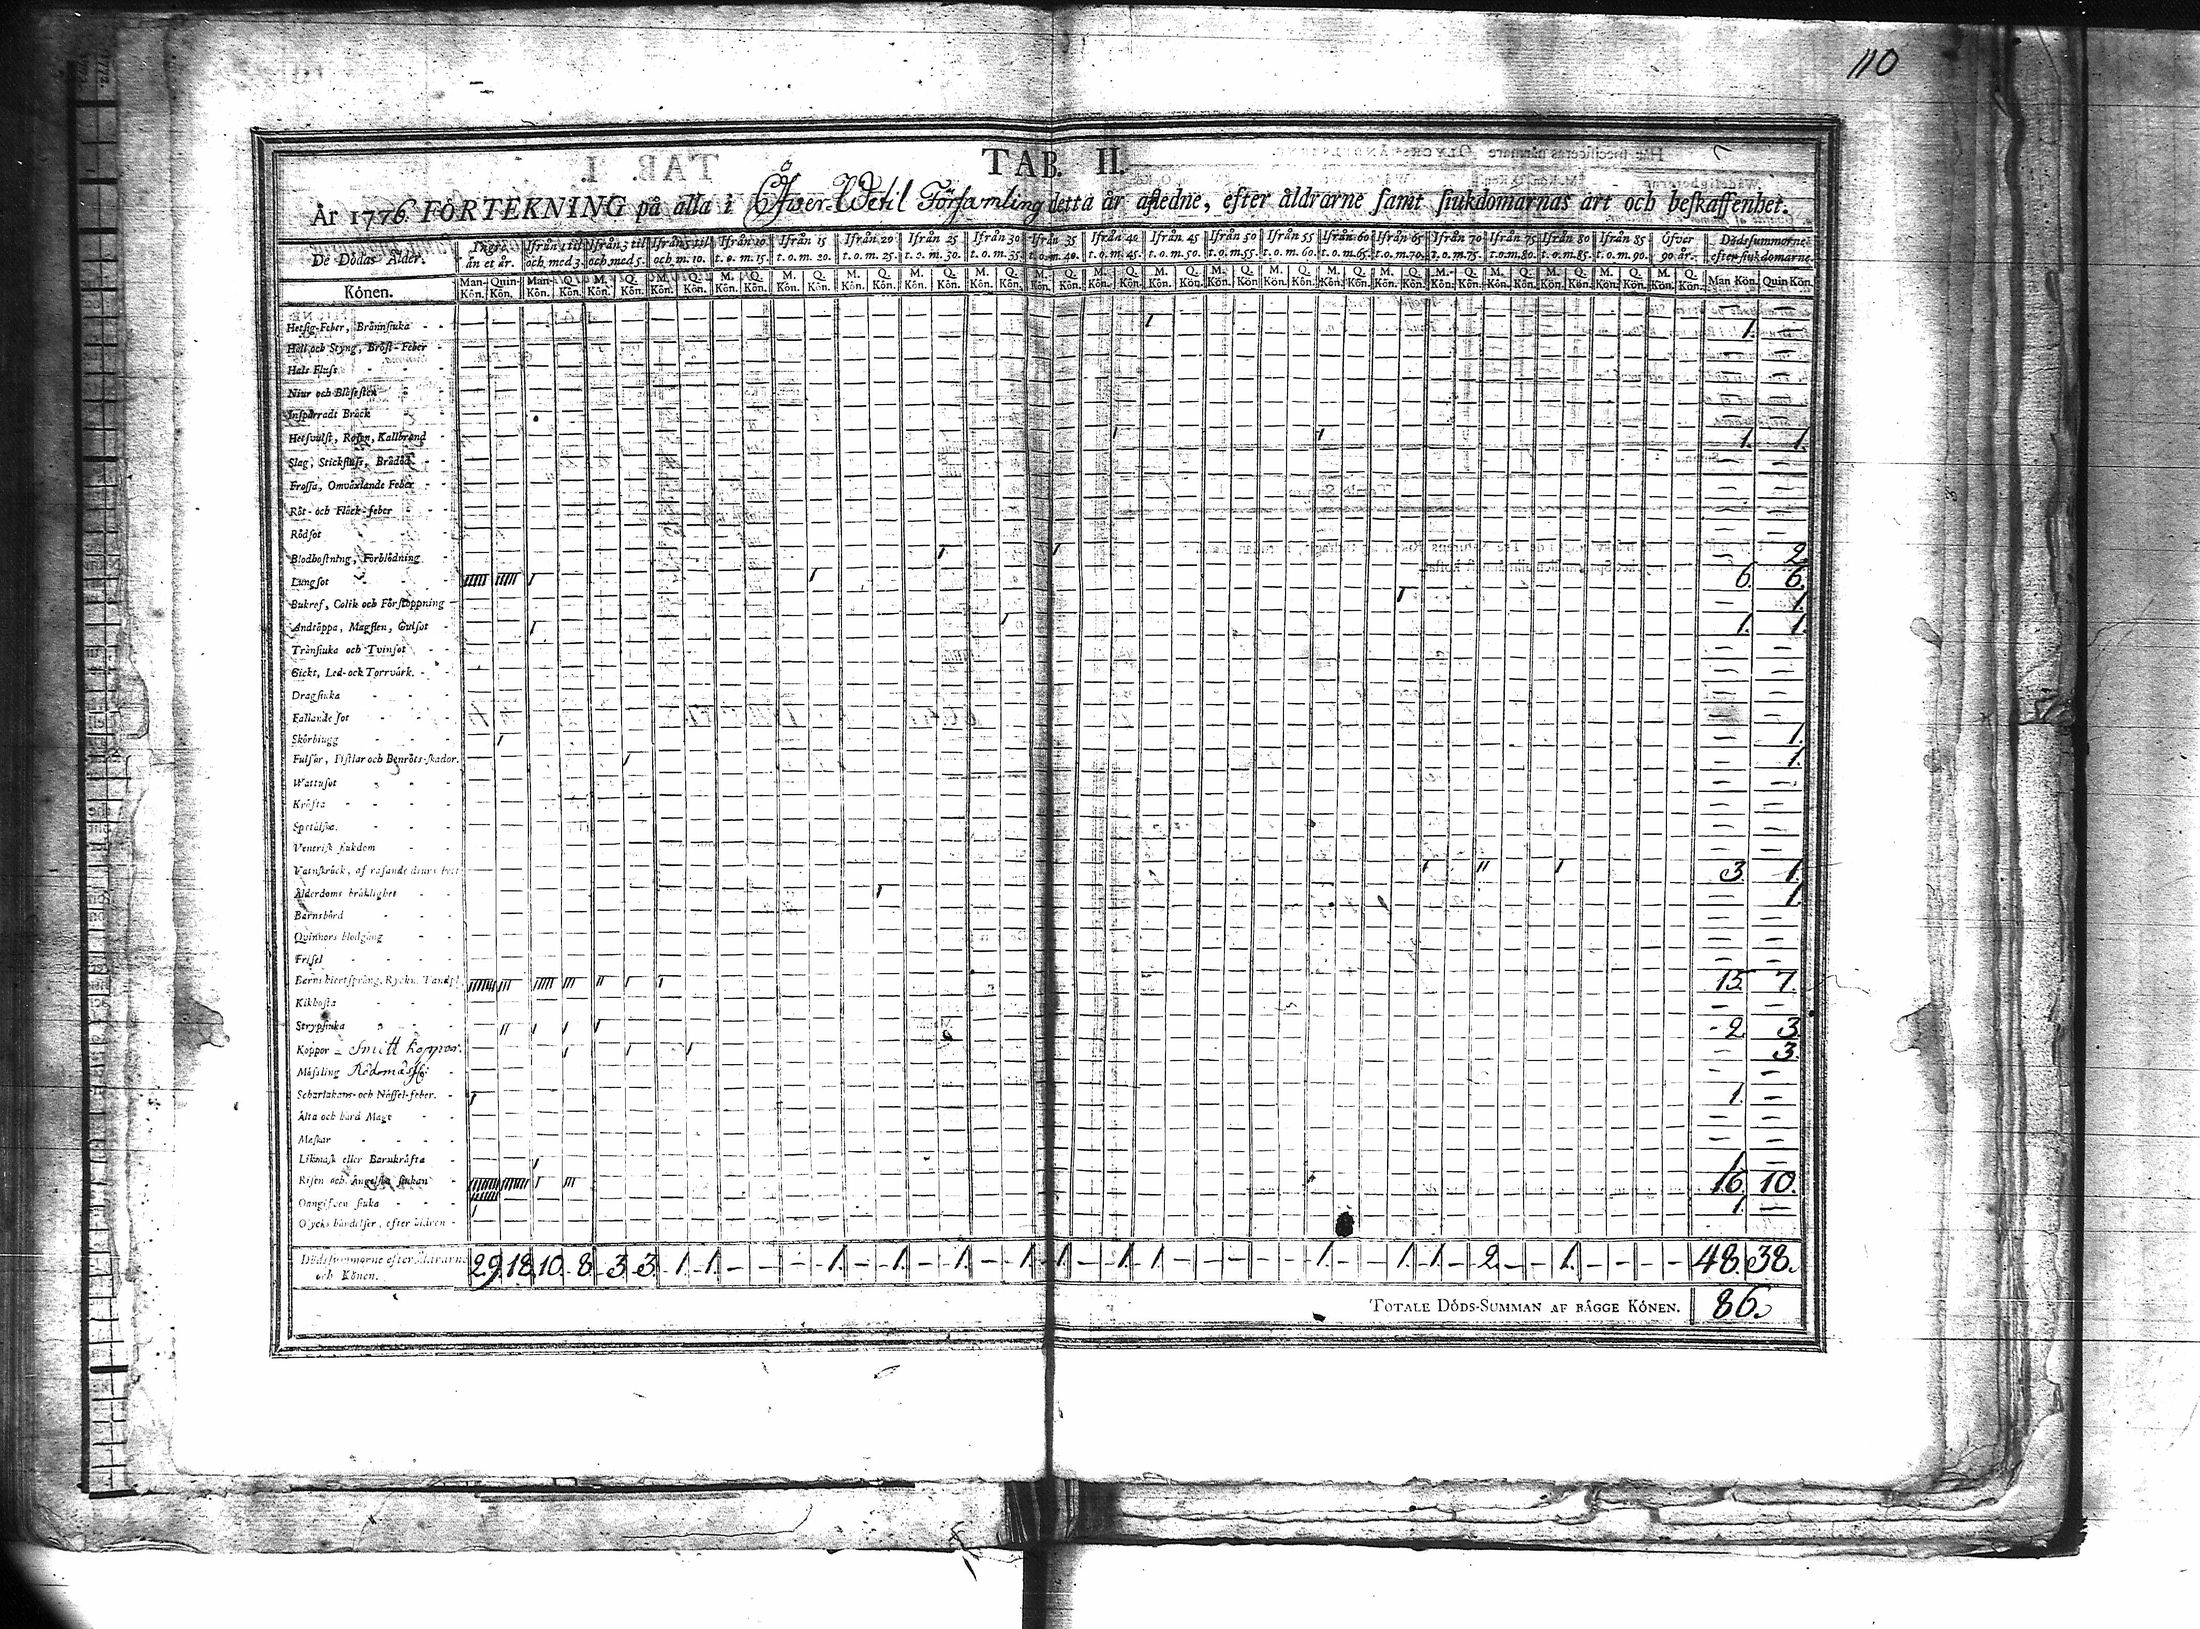 110
TAB. II.
År 1776 FÖRTEKNING på alla i Öfwer-Wetil Församling detta år afledne, efter åldrarne samt siukdomarnas art och beskaffenhet.
De Dödas Ålder. Yngre än et år. Ifrån 1 til och med 3. Ifrån 3 til och med 5. Ifrån 5 til och m. 10. Ifrån 10 t. o. m. 15. Ifrån 15 t. o. m. 20. Ifrån 20 t. o. m. 25. Ifrån 25 t. o. m. 30. Ifrån 30 t. o. m. 35. Ifrån 35 t. o. m. 40. Ifrån 40 t. o. m. 45. Ifrån 45 t. o. m. 50. Ifrån 50 t. o. m. 55. Ifrån 55 t. o. m. 60. Ifrån 60 t. o. m. 65. Ifrån 65 t. o. m. 70. Ifrån 70 t. o. m. 75. Ifrån 75 t. o. m. 80. Ifrån 80 t. o. m. 85. Ifrån 85 t. o. m. 90. Öfver 90 år. Dödssummorne efter siukdomarne.
Könen. Man-Kön. Quin-Kön. Man-Kön. Q. Kön. M. Kön. Q. Kön. M. Kön. Q. Kön. M. Kön. Q. Kön. M. Kön. Q. Kön. M. Kön. Q. Kön. M. Kön. Q. Kön. M. Kön. Q. Kön. M. Kön. Q. Kön. M. Kön. Q. Kön. M. Kön. Q. Kön. M. Kön. Q. Kön. M. Kön. Q. Kön. M. Kön. Q. Kön. M. Kön. Q. Kön. M. Kön. Q. Kön. M. Kön. Q. Kön. M. Kön. Q. Kön. M. Kön. Q. Kön. M. Kön. Q. Kön. Man Kön. Quin Kön.
Hetsig-Feber, Brännsiuka 1 1. —
Håll och Styng, Bröst-Feber — —
Hals Fluss — —
Niur och Blåsesten — —
Inspärradt Bråck — —
Hetsvulst, Rosen, Kallbrand 1 1 1. 1.
Slag, Stickfluss, Brådöd — —
Frossa, Omväxlande Feber — —
Röt- och Fläck-feber — —
Rödsot — —
Blodhostning, Förblödning 1 1 — 2
Lungsot 11111 11111 1 1 6. 6.
Bukref, Colik och Förstoppning 1 — 1.
Andtäppa, Magsten, Gulsot 1 1 1. 1.
Trånsiuka och Tvinsot — —
Gickt, Led- och Torrvärk. — —
Dragsiuka — —
Fallande sot — —
Skörbiugg 1 — 1.
Fulsår, Fistlar och Benröts-skador. 1 — 1.
Wattusot — —
Kräfta — —
Spetälska. — —
Venerisk siukdom — —
Vatnskräck, af rasande diurs bett
Ålderdoms bräklighet 1 11 1 3 1.
Barnsbörd 1 — 1.
Quinnors blodgång — —
Frisel — —
Barns hiertsprång, Ryckn. Tandsl. 15. 7.
Kikhosta — —
Strypsiuka 11 1 1 1 2 3
Koppor - Smitt koppor. 1 1 1 — 3.
Mässling — —
Scharlakans- och Nässel-feber. 1 1. —
Älta och hård Mage — —
Maskar — —
Likmask eller Barnkräfta 1 1 —
Risen och Angelska siukan 16 10.
Oangifven siuka 1 1. —
Olycks händelser, efter åldren
Dödssummorne efter åldrarne och Könen. 29. 18. 10. 8. 3. 3. 1. 1. — — — 1. — 1. — 1. — 1. — 1. — 1. 1. — — — — 1. — — 1. 1. — 2. — — 1. — — — — — 48. 38.
TOTALE DÖDS-SUMMAN AF BÄGGE KÖNEN. 86.